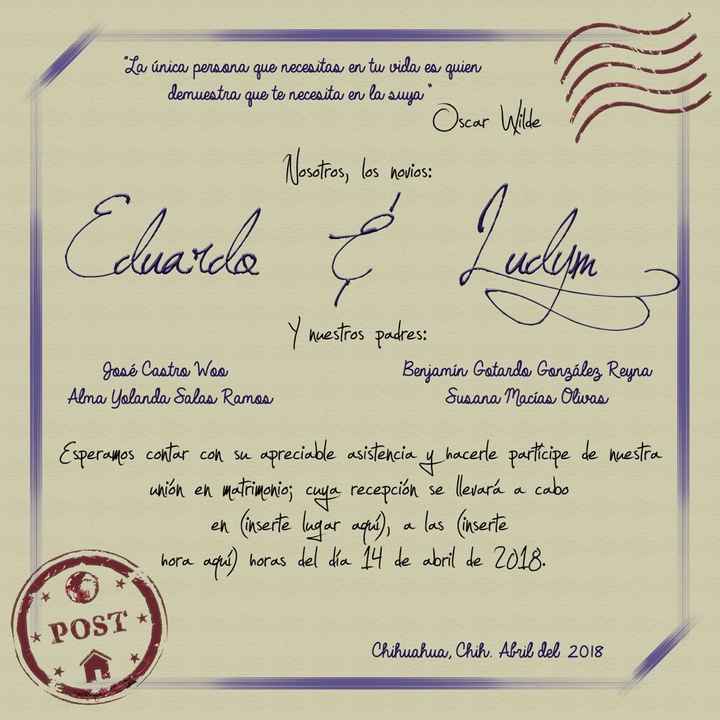 "La única persona que necesitas en tu vida es quien
demuestra que te necesita en la suya"
Oscar Wilde
Nosotros, los novios:
Eduardo & Ludym
Y nuestros padres:
José Castro Woo
Alma Yolanda Salas Ramos
Benjamín Gotardo González Reyna
Susana Macías Olivas
Esperamos contar con su apreciable asistencia y hacerle partícipe de nuestra
unión en matrimonio; cuya recepción se llevará a cabo
en (inserte lugar aquí), a las (inserte
hora aquí) horas del día 14 de abril de 2018.
POST
Chihuahua, Chih. Abril del 2018